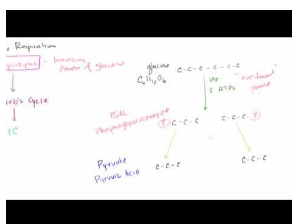 Respiration
- breaking
down of glucose
Kreb's Cycle
ETC
glucose
C6H12O6
C-C-C-C-C-C
use
2 ATPs
"investment"
phase
PGAL
Phosphoglyceraldehyde
P C-C-C
C-C-C P
Pyruvate
Pyruvic Acid
C-C-C
C-C-C